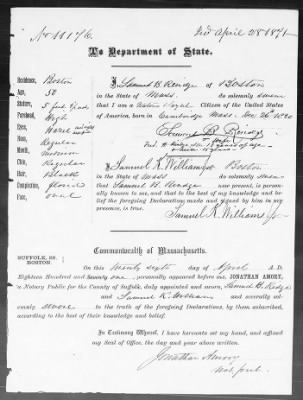 No 11176
April 28 1871
To Department of State.
Residence, Boston
Age, 50
Stature, 5 feet
Forehead, High
Eyes, Hazel
Nose, Regular
Mouth, Medium
Chin, Regular
Hair, Black
Complexion, florid
Face, oval
I, Samuel B. Rindge of Boston
in the State of Mass. do solemnly swear
that I am a Native & Loyal Citizen of the United States
of America, born in Cambridge Mass. Dec 26th 1820
Samuel B. Rindge
I, Samuel K. Williams Jr of Boston
in the State of Mass do solemnly swear
that Samuel B. Rindge now present, is personally
known to me, and that to the best of my knowledge and belief
the foregoing Declaration, made and signed by him in my
presence, is true.
Samuel K. Williams Jr
Commonwealth of Massachusetts.
SUFFOLK, SS.
BOSTON.
On this twenty sixth day of April A. D.
Eighteen Hundred and Seventy one, personally appeared before me JONATHAN AMORY,
a Notary Public for the County of Suffolk, duly appointed and sworn, Samuel B. Rindge
and Samuel K. Williams and severally solemnly
swore to the truth of the foregoing Declarations, by them subscribed,
according to the best of their knowledge and belief.
In Testimony Whereof, I have hereunto set my hand, and affixed
my Seal of Office, the day and year above written.
Jonathan Amory
Not. Pub.